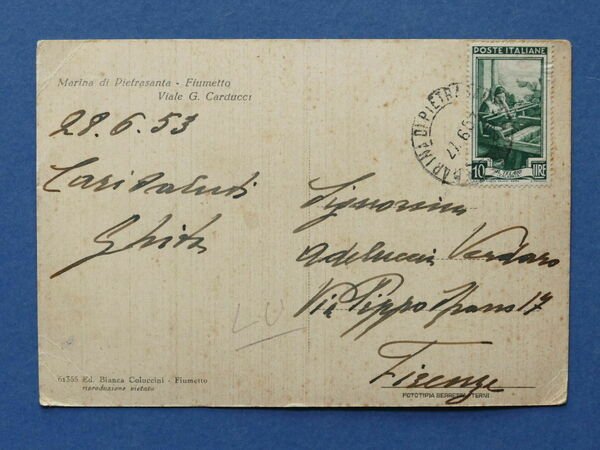 Marina di Pietrasanta - Fiumetto
Viale G. Carducci
28.6.53
Cari saluti
Ghita
61355 Ed. Bianca Coluccini - Fiumetto
riproduzione vietata
LU
POSTE ITALIANE
10 LIRE
MARINA DI PIETRA
Signorina
Adeluccia Verdaro
Via Pippo Spano 17
Firenze
FOTOTIPIA BERRETTA - TERNI